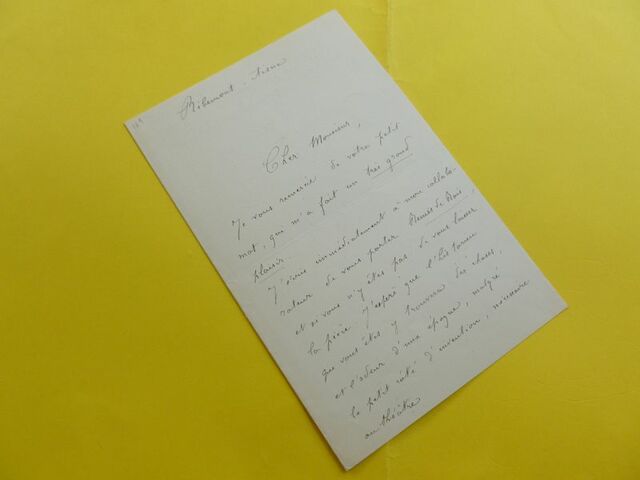 Ribemont. Aisne
Cher Monsieur,
Je vous remercie de votre petit
mot, qui m'a fait un très grand
plaisir.
J'écris immédiatement à mon collabo-
rateur de vous porter
et si vous n'y êtes pas de vous laisser
la pièce. J'espère que l'historien
que vous êtes y trouvera des choses,
et l'odeur d'une époque, malgré
le petit côté d'invention, nécessaire
au théâtre